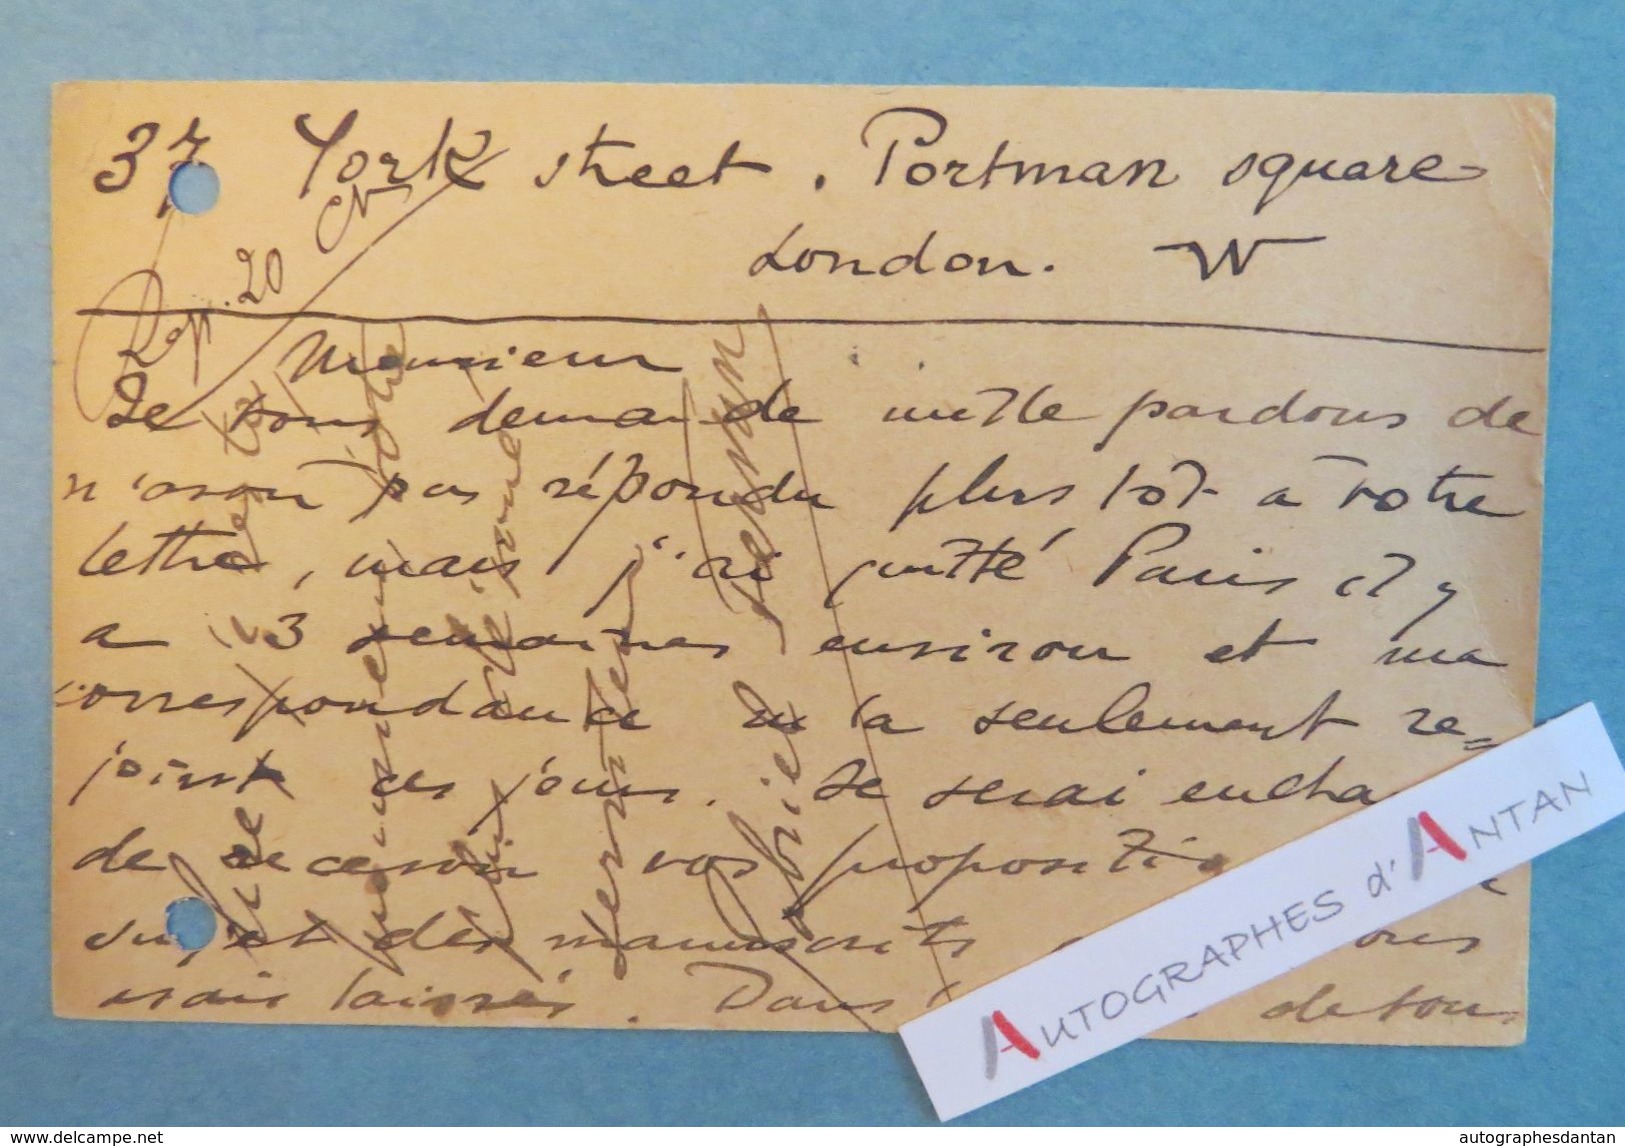 37 York street. Portman square
London. W
Rep. 20
Monsieur
Je vous demande mille pardons de
n'avoir pas répondu plus tôt à votre
lettre, mais j'ai quitté Paris il y
a 3 semaines environ et ma
correspondance m'a seulement re-
joint ces jours. Je serai encha
de recevoir vos propositi
sujet des manuscrits ous
avais laissés. Dans de tou
AUTOGRAPHES d'ANTAN
www.delcampe.net
autographesdantan